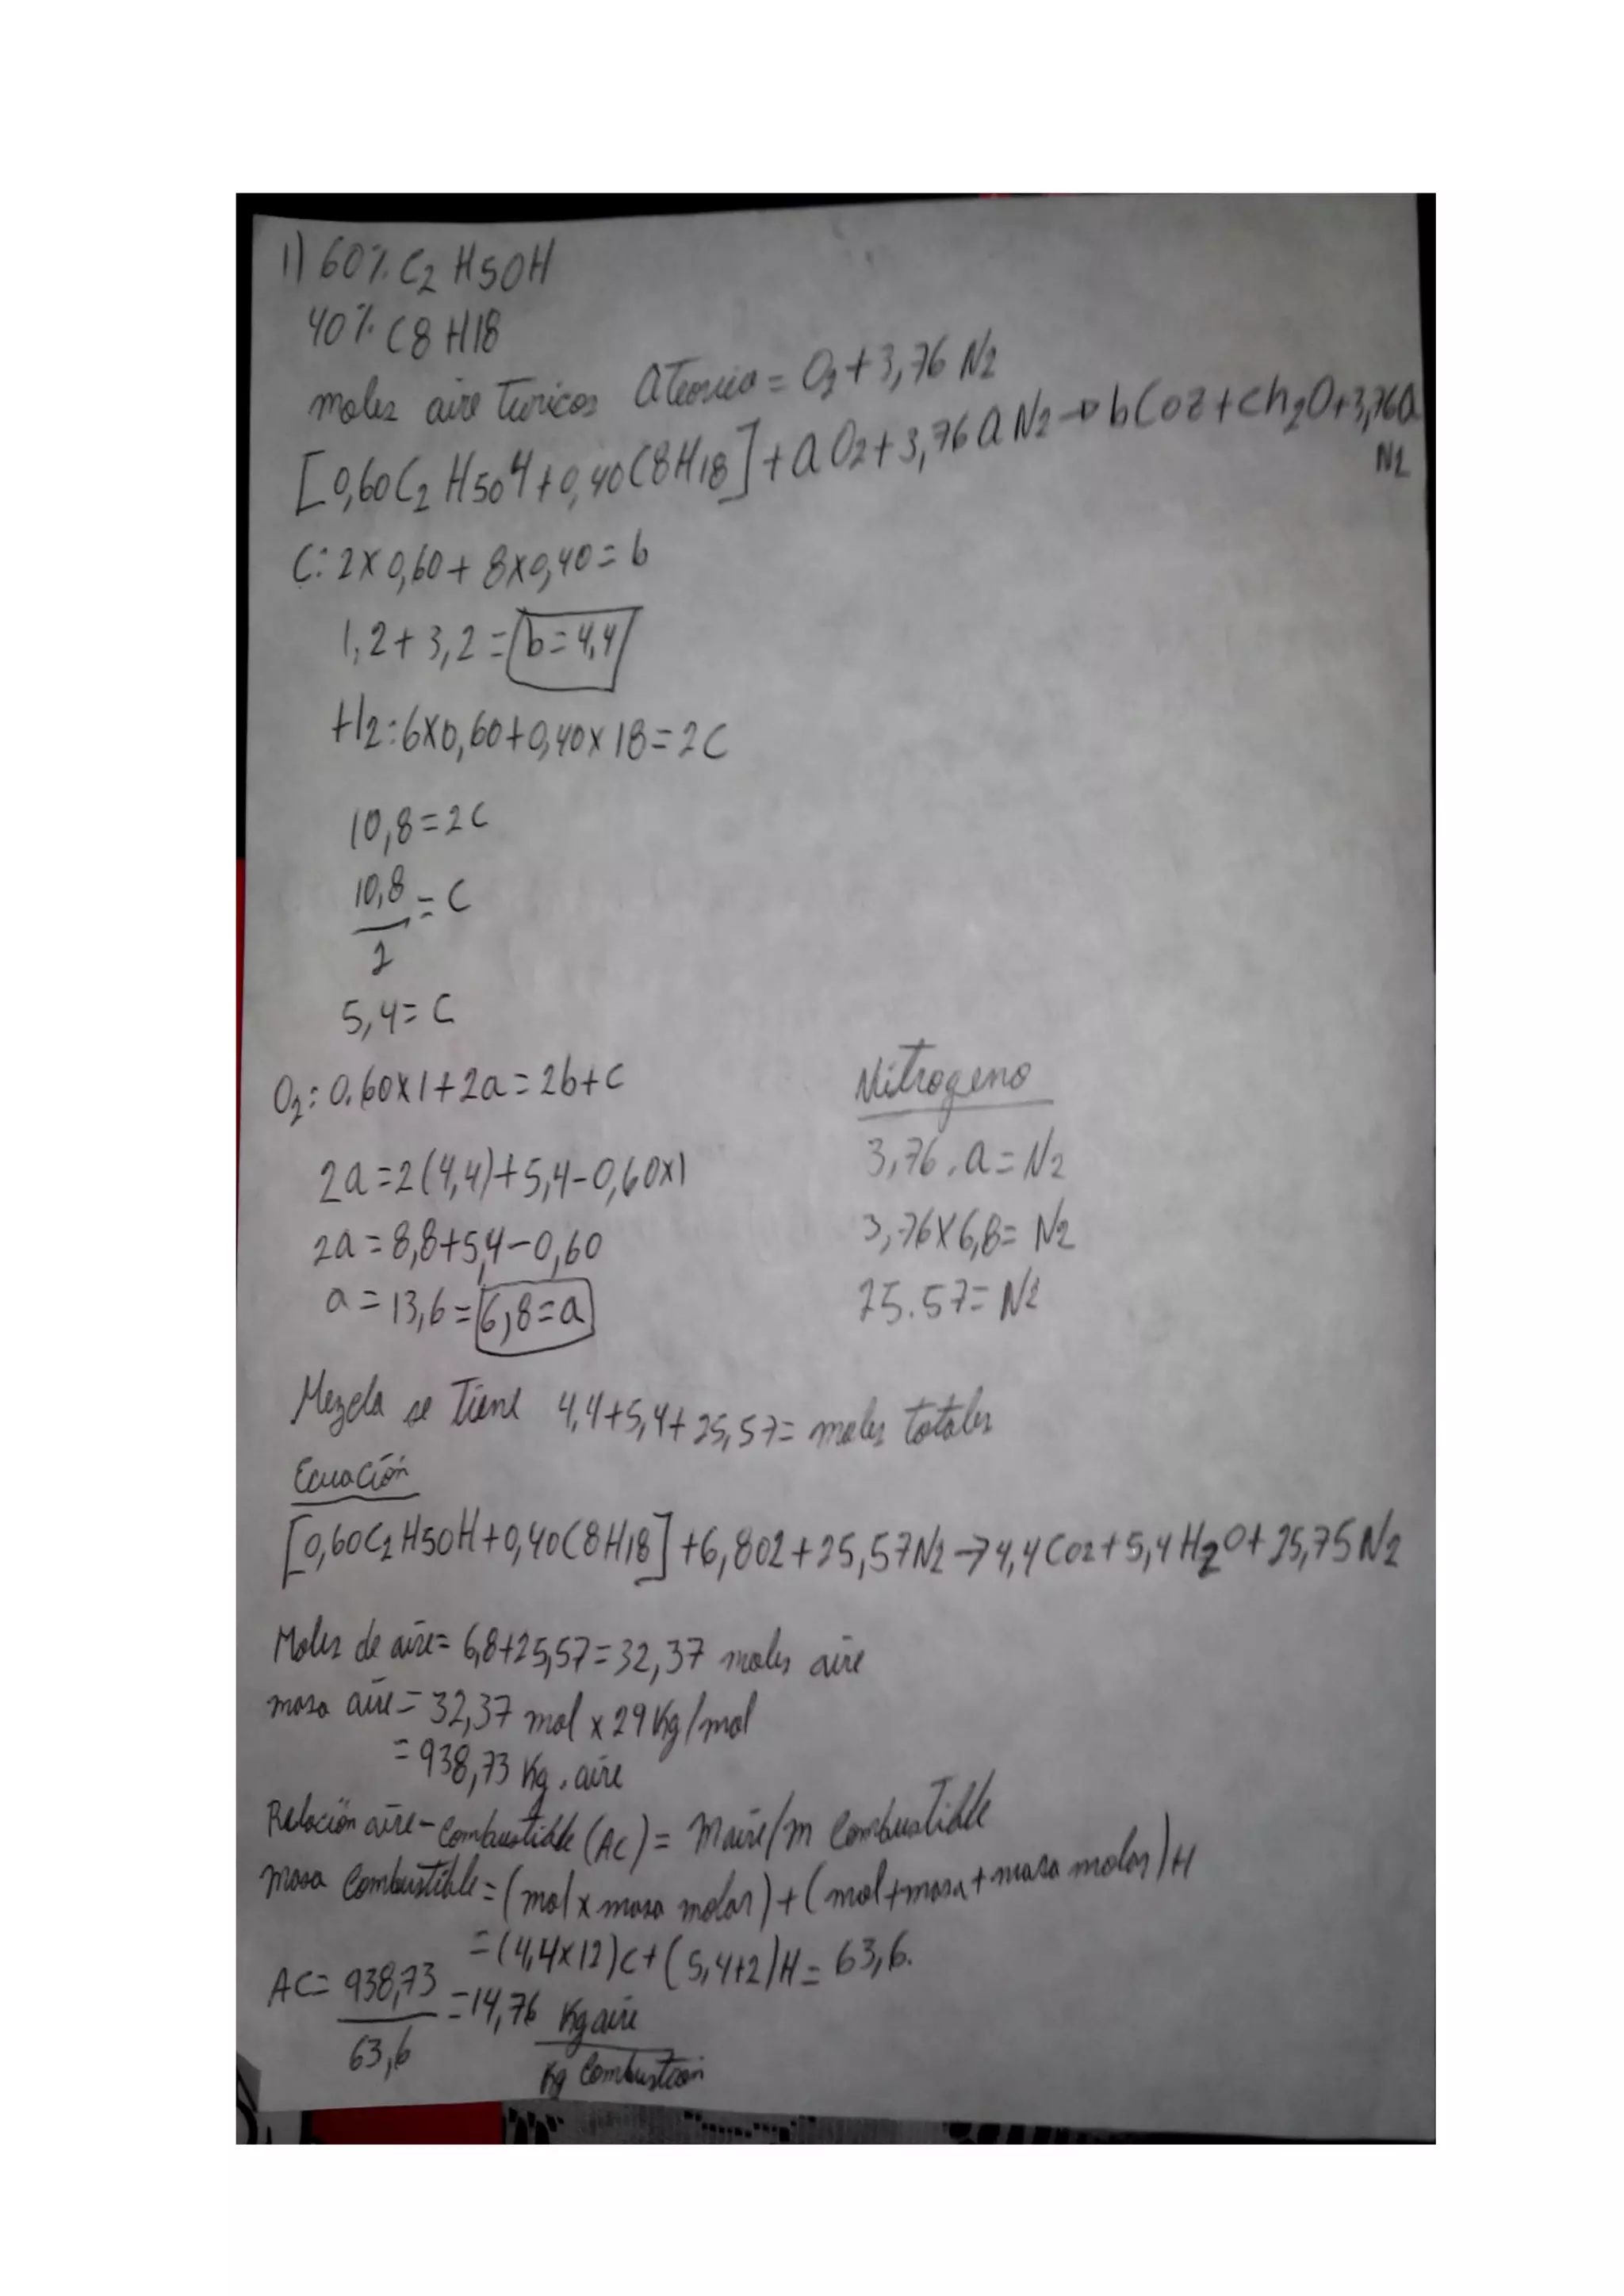 1) 60% C2 H5OH
40% C8 H18
moles aire Tericos aTeorico = O2 + 3,76 N2
[0,60C2 H5O4 + 0,40C8H18] + a O2 + 3,76 a N2 → b CO2 + ch2O + 3,76a
N2
C: 2 x 0,60 + 8 x 0,40 = b
1,2 + 3,2 = b = 4,4
H2: 6x0,60 + 0,40 x 18 = 2C
10,8 = 2C
10,8 = C
2
5,4 = C
O2: 0.60x1 + 2a = 2b + c
2a = 2(4,4) + 5,4 - 0,60x1
2a = 8,8 + 5,4 - 0,60
a = 13,6 = 6,8 = a
Nitrogeno
3,76 . a = N2
3,76 x 6,8 = N2
25.57 = N2
Mezcla se Tiene 4,4 + 5,4 + 25,57 = moles totales
Ecuación
[0,60C2 H5OH + 0,40C8H18] + 6,8O2 + 25,57N2 → 4,4 CO2 + 5,4 H2O + 25,75 N2
Moles de aire = 6,8 + 25,57 = 32,37 moles aire
masa aire = 32,37 mol x 29 Kg/mol
= 938,73 Kg . aire
Relación aire - Combustible (AC) = Maire/m Combustible
masa Combustible = (mol x masa molar) + (mol + masa + masa molar) H
= (4,4x12)C + (5,4+2)H = 63,6.
AC = 938,73 = 14,76 Kg aire
63,6 Kg Combustion